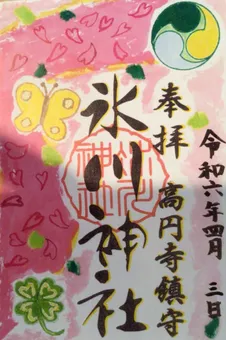 令和六年四月三日
奉拝 高円寺鎮守
氷川神社